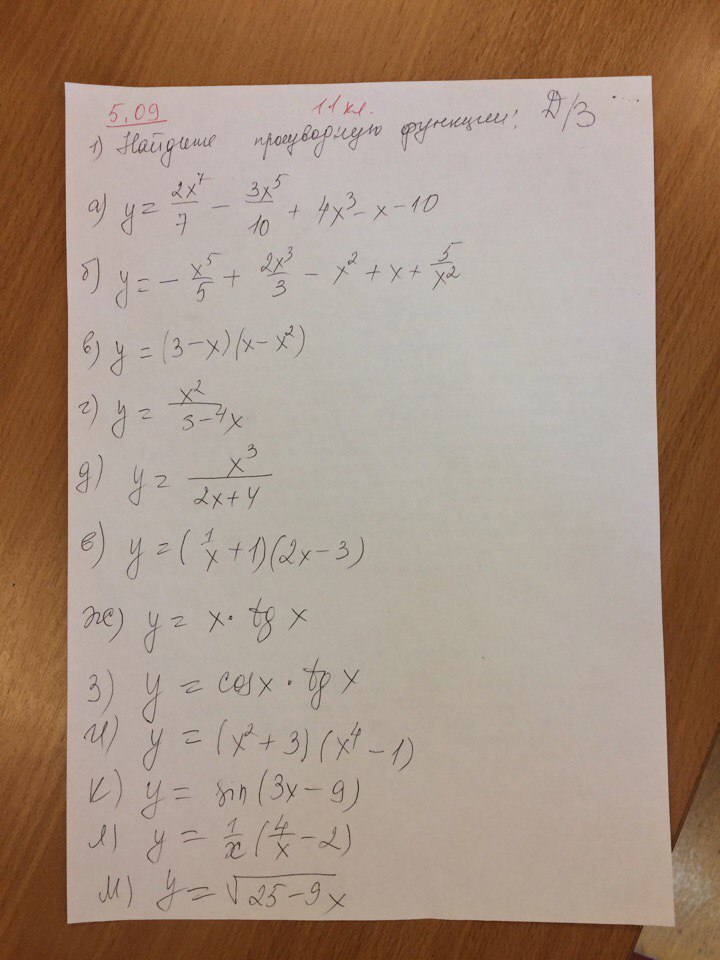 5.09 11 кл. Д/З
1) Найдите производную функции:
а) y = 2x⁷/7 − 3x⁵/10 + 4x³ − x − 10
б) y = − x⁵/5 + 2x³/3 − x² + x + 5/x²
в) y = (3 − x)(x − x²)
г) y = x²/(3 − 4x)
д) y = x³/(2x + 4)
е) y = (1/x + 1)(2x − 3)
ж) y = x · tg x
З) y = cos x · tg x
и) y = (x² + 3)(x⁴ − 1)
к) y = sin(3x − 9)
л) y = 1/x (4/x − 2)
м) y = √(25 − 9x)